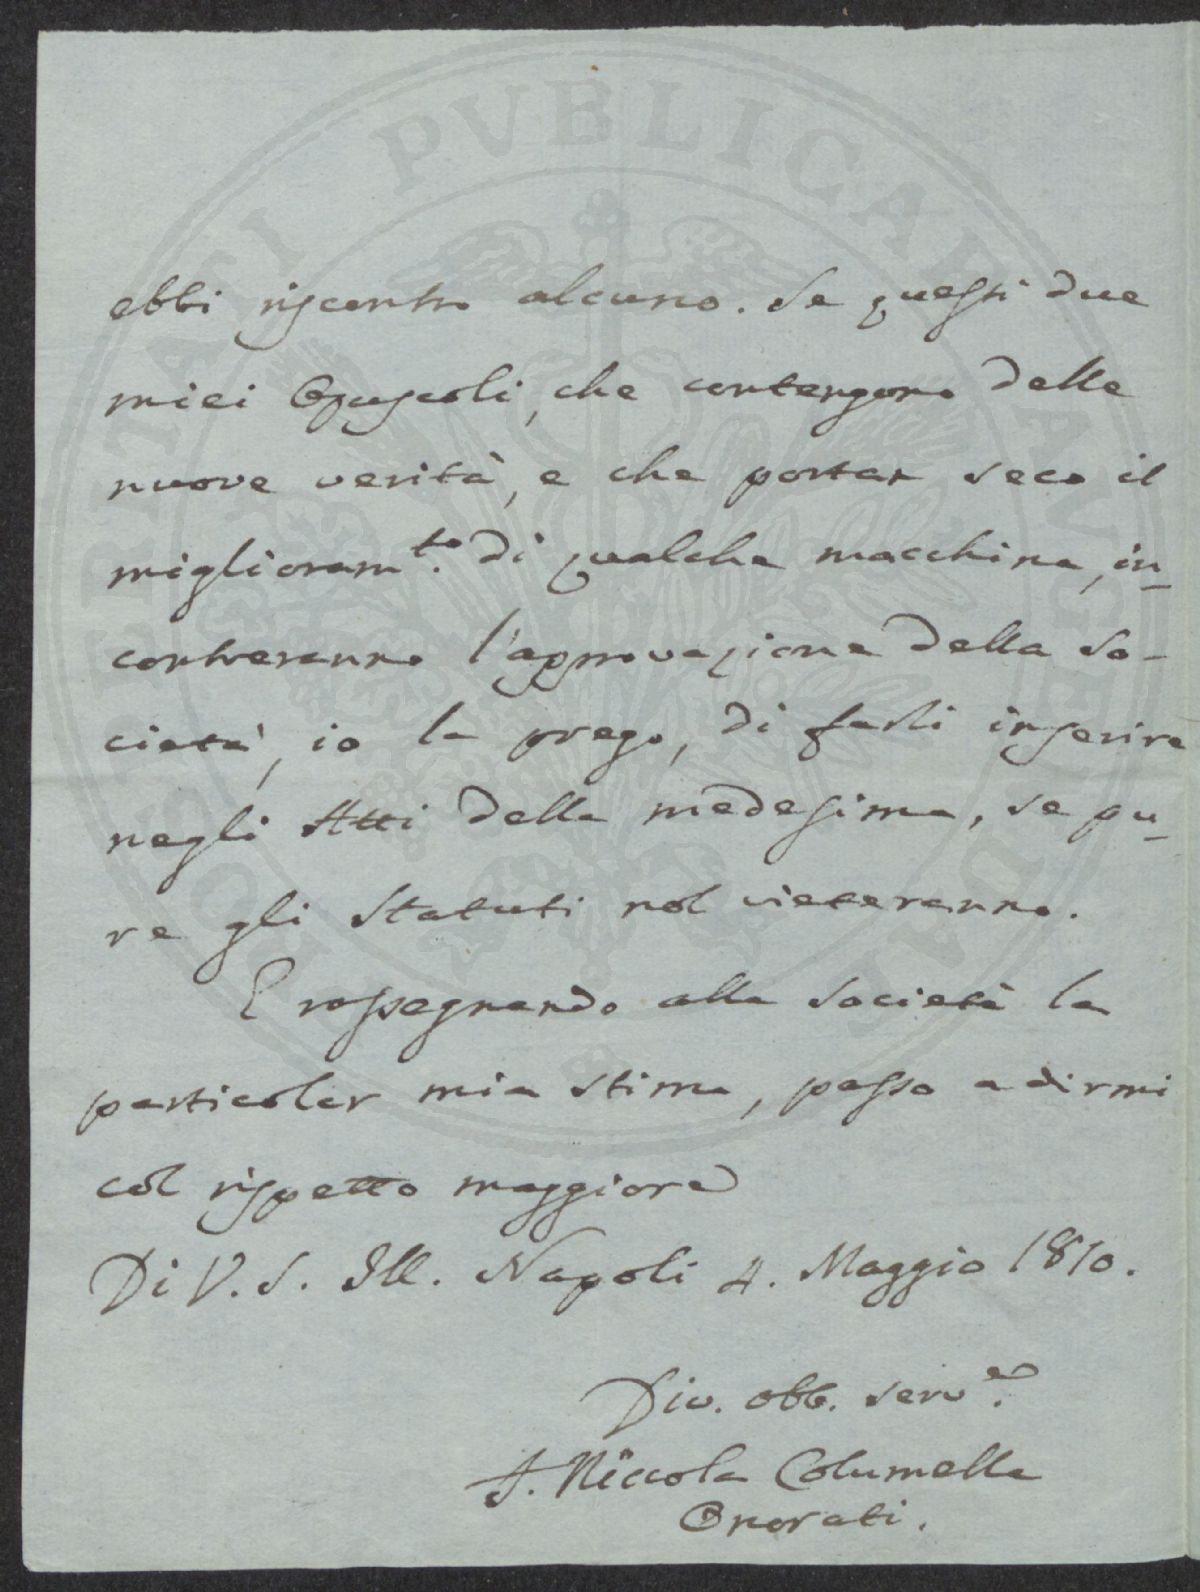 ebbi riscontro alcuno. Se questi due
miei Opuscoli, che contengono delle
nuove verità, e che portan seco il
miglioram.to di qualche macchina, in-
contreranno l'approvazione della So-
cietà, io la prego, di farli inserire
negli Atti della medesima, se pu-
re gli Statuti nol vieteranno.
E rassegnando alla Società la
particolar mia stima, passo a dirmi
col rispetto maggiore
Di V. S. Ill. Napoli 4. Maggio 1810.
Div. obb. serv.e
F. Niccola Columella
Onorati.